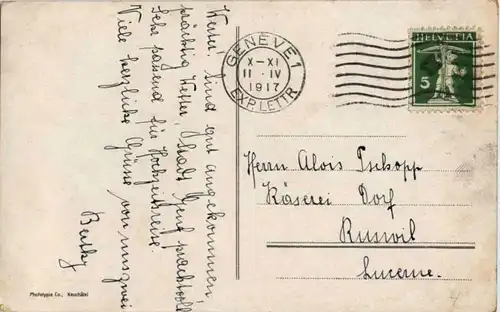 Werter. Sind gut angekommen,
prächtig Wetter, Stadt Genf prachtvoll
Sehr passend für Hochzeitsreise.
Viele herzliche Grüsse von uns zwei
Berthy
GENÈVE 1
X-XI
11·IV
1917
EXP. LETTR.
HELVETIA
5
Herrn Alois Tschopp
Käserei Dorf
Ruswil
Lucerne.
Phototypie Co., Neuchâtel